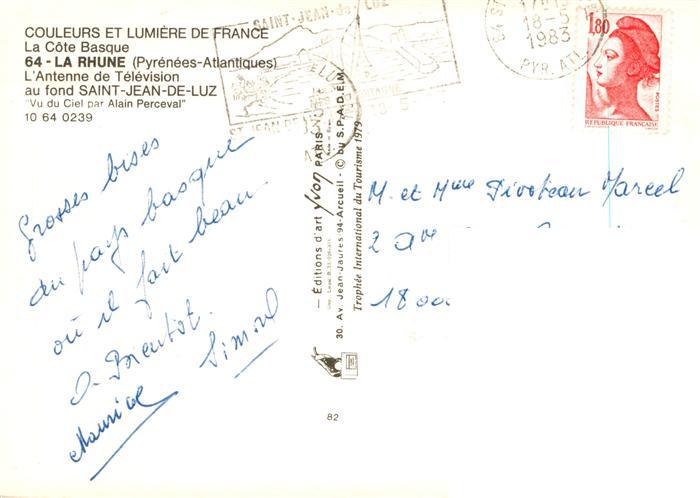 COULEURS ET LUMIÈRE DE FRANCE
La Côte Basque
64 - LA RHUNE (Pyrénées-Atlantiques)
L'Antenne de Télévision
au fond SAINT-JEAN-DE-LUZ
"Vu du Ciel par Alain Perceval"
10 64 0239
SAINT-JEAN-de-LUZ
18-5
1983
PYR. ATL.
1,80
POSTES
REPUBLIQUE FRANÇAISE
Grosses bises
du pays basque
où il fait beau
A Bientôt.
Maurice Simone
— Éditions d'art yvon PARIS
30. Av. Jean-Jaurès 94-Arcueil - © by S.P.A.D.E.M.
Trophée International du Tourisme 1979
M. et Mme Pivoteau Marcel
2 Ave
18000
82